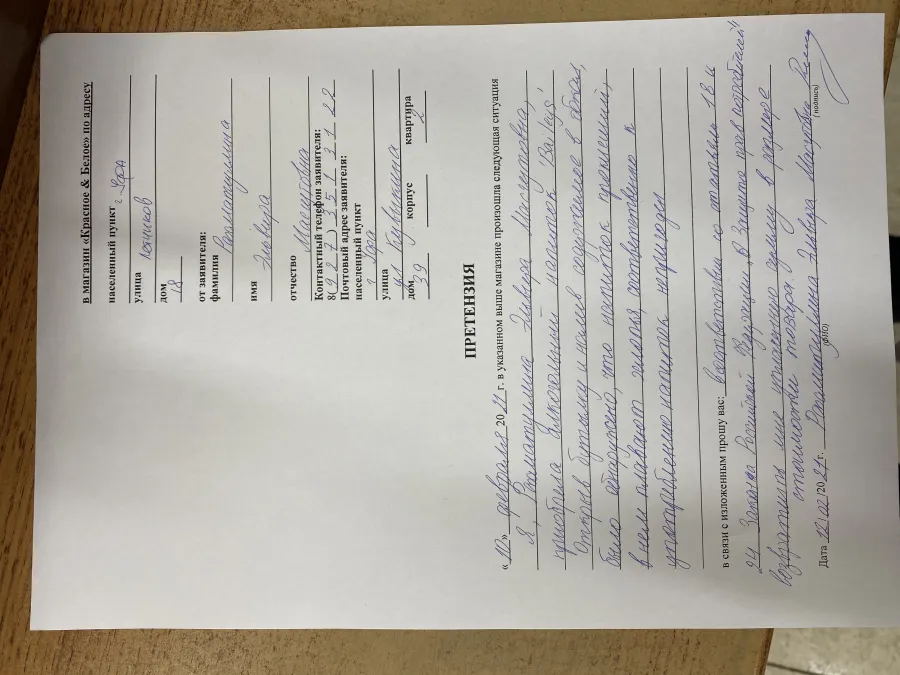 в магазин «Красное & Белое» по адресу
населенный пункт г. Уфа
улица
дом 18
от заявителя:
фамилия Рахматуллина
имя Эльвира
отчество Масгутовна
Контактный телефон заявителя:
8(927) 351 31 22
Почтовый адрес заявителя:
населенный пункт
г Уфа
улица
ул Кувыкина
дом 39 корпус квартира 2
ПРЕТЕНЗИЯ
«10» февраля 2021 г. в указанном выше магазине произошла следующая ситуация
Я, Рахматуллина Эльвира Масгутовна,
приобрела алкогольный напиток "Baileys",
Открыв бутылку и налив содержимое в бокал,
было обнаружено, что напиток прокисший,
в нем плавают хлопья, соответственно к
употреблению напиток непригоден
в связи с изложенным прошу вас: в соответствии со статьями 18 и
24 Закона Российской Федерации "О Защите прав потребителей"
возвратить мне уплаченную сумму в размере
стоимости товара
Дата 12/02/2021 г. Рахматуллина Эльвира Масгутовна
(ФИО) (подпись)